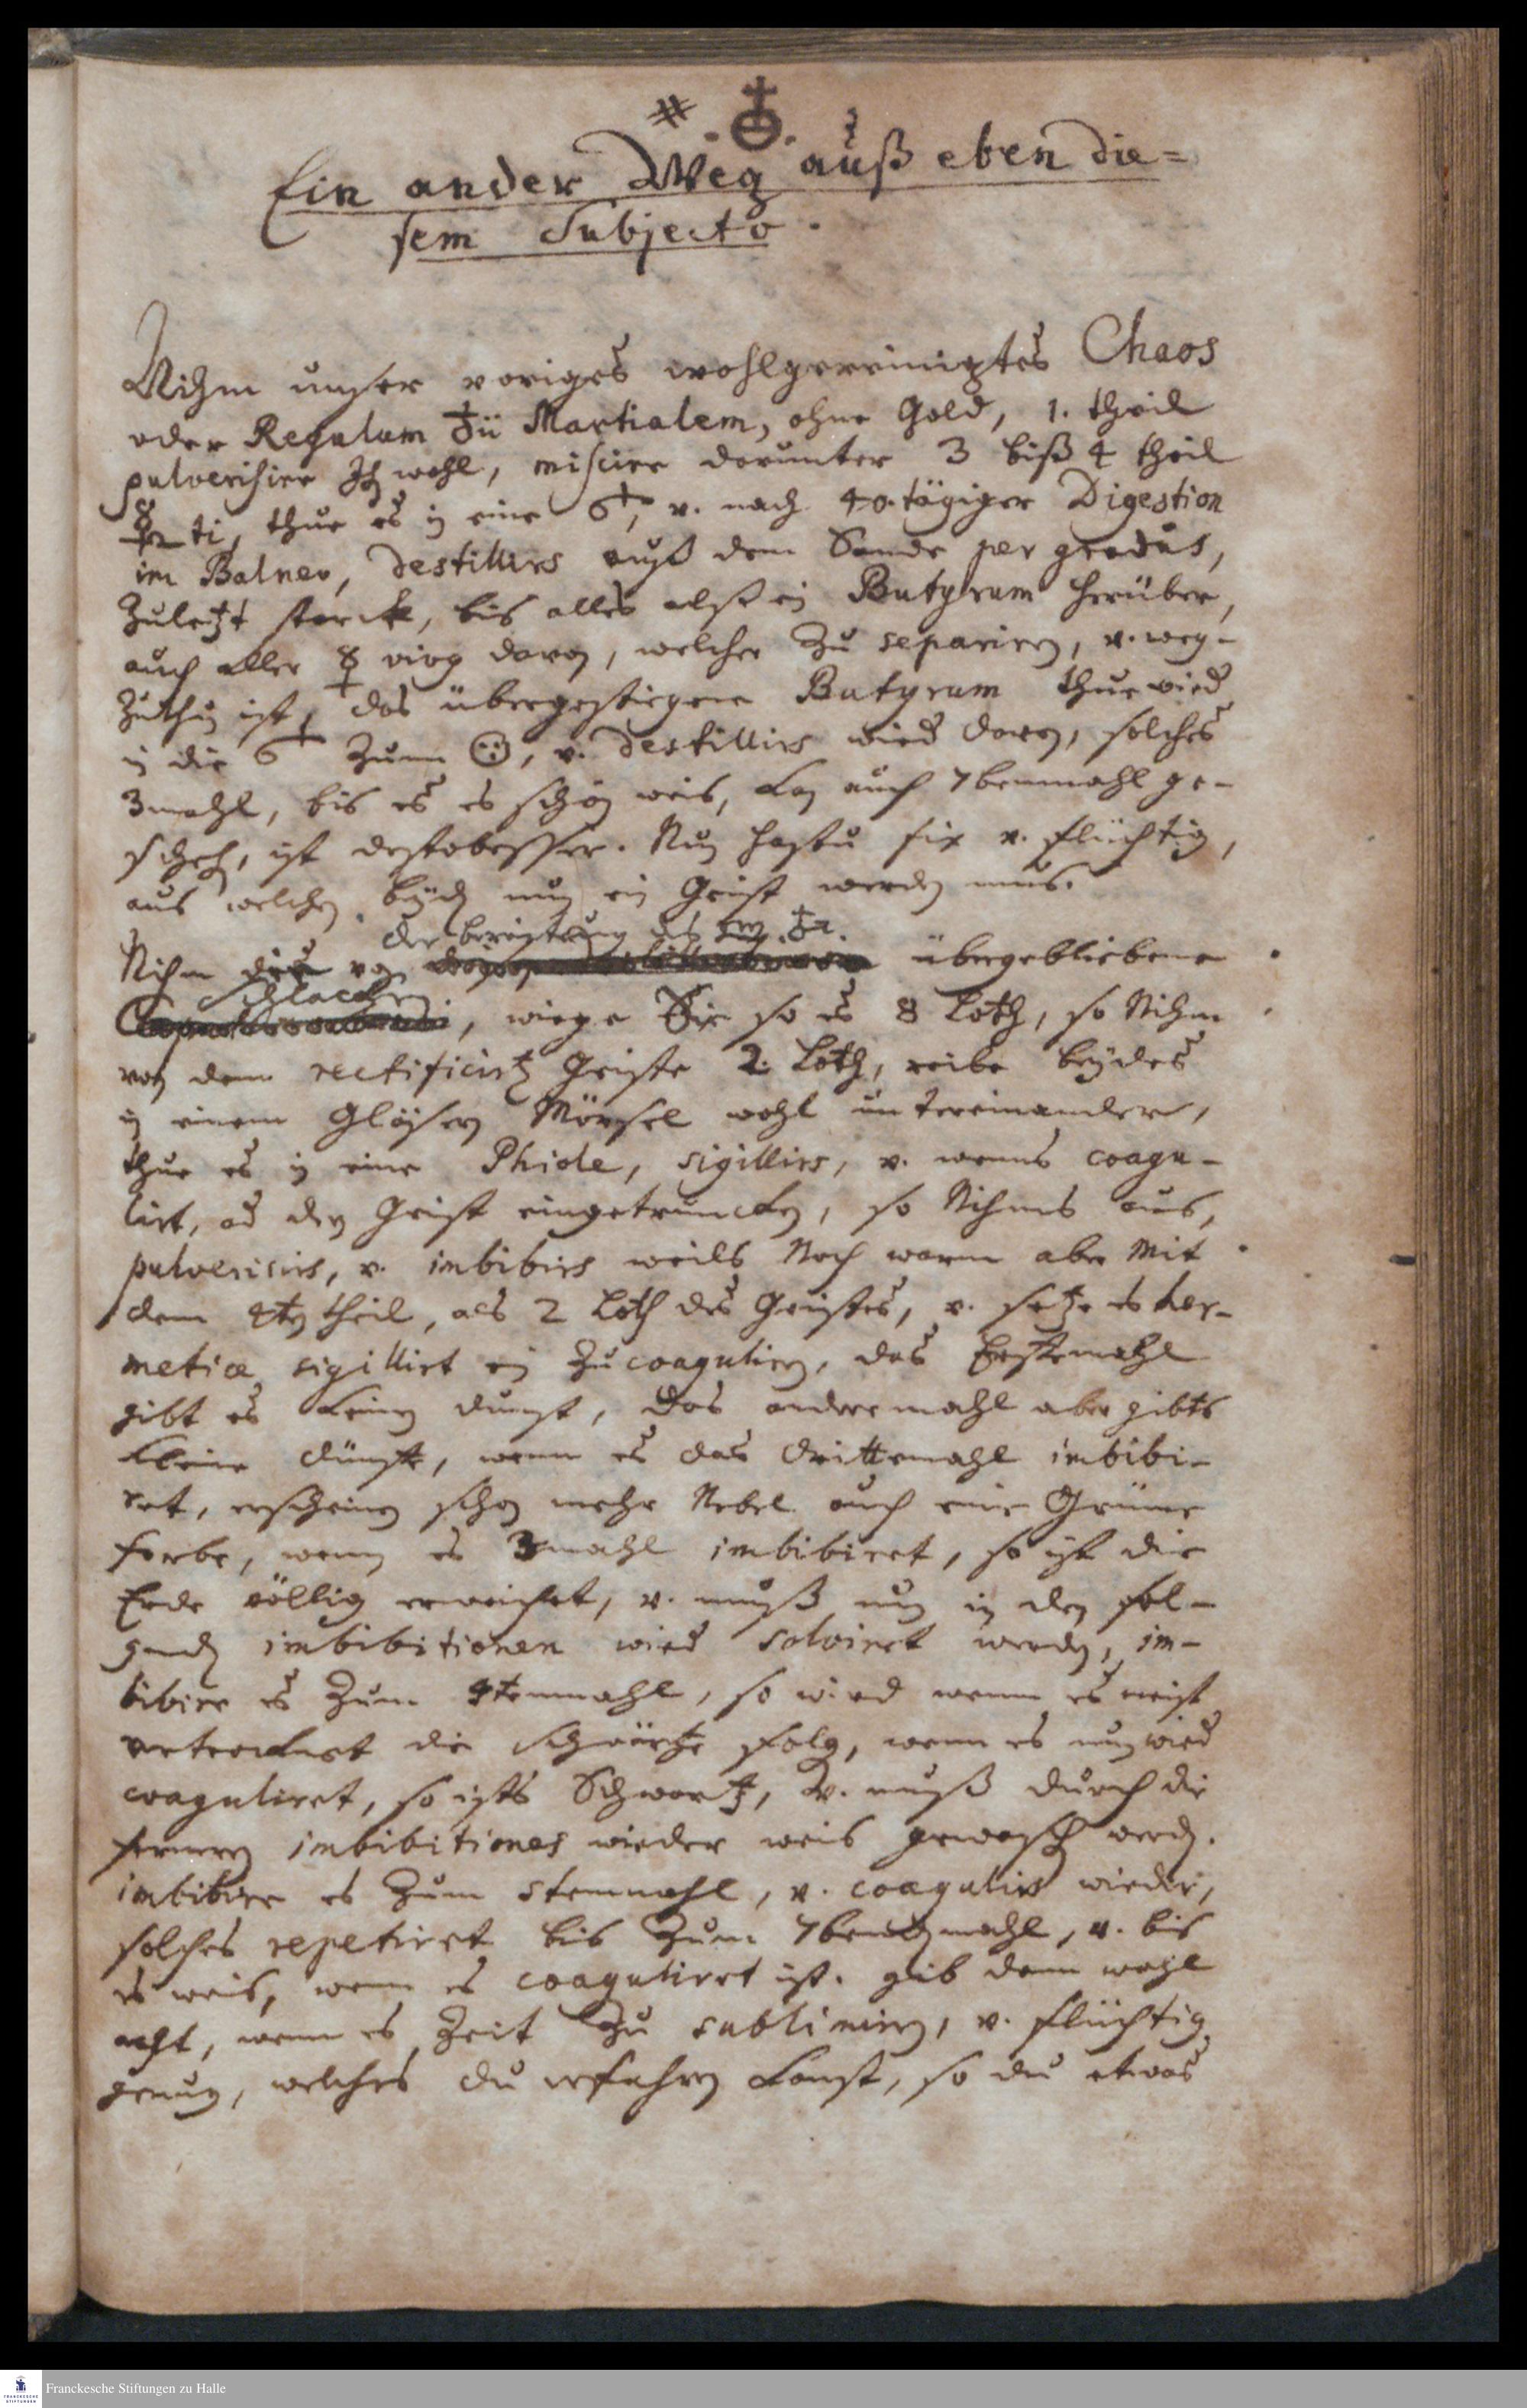 Ein ander Weg auß eben die=
sem Subjecto.
Nihm unser voriges wohlgereinigtes Chaos
oder Regulum ♁ii Martialem, ohne Gold, 1. theil
pulverisire Ihn wohl, miscire darunter 3 biß 4 theil
☿ ti, thue es in eine v. nach 40. tägiger Digestion
im Balneo, Destillirs auß dem Sande per gradus,
Zuletzt starck, bis alles alß ein Butyrum herüber,
auch aller ☿ davon, welcher Zu separiren, v. weg-
Zuthun ist, das übergestiegene Butyrum thue wied
in die Zum v. Destillirs wied davon, solches
3mahl, bis es schön weis, kan auch 7benmahl ge-
schehn, ist destobesser. Nun hastu fix v. flüchtig,
aus welchen beyden nun ein Geist werden mus.
der bereitung des
Nihm die von übergebliebene
Schlacken
, wiege Sie so es 8 Loth, so Nihm
von dem rectificirten Geiste 2. Loth, reibe beydes
in einem Gläsern Mörsel wohl untereinander,
thue es in eine Phiole, sigillirs, v. wenns coagu-
lirt, und den Geist eingetruncken, so Nihms aus,
pulverisirs, v. imbibirs weils Noch warm aber Mit
dem 4ten theil, als 2 Loth des Geistes, v. setze es her-
metice sigillirt ein Zu coaguliren, das Erstemahl
gibt es keinen dunst, das anderemahl aber gibts
kleine dünste, wenn es das drittemahl imbibi-
ret, erscheinen schon mehr Nebel auch eine Grüne
farbe, wenn es 3mahl imbibiret, so ist die
Erde völlig erweichet, v. muß nun in den fol-
genden imbibitionen wied solviret werden, im-
bibire es Zum 4tenmahl, so wird wenn es meist
vertrocknet die Schwärtze folgen, wenn es nun wied
coaguliret, so ists Schwartz, v. muß durch die
fernern imbibitiones wieder weis gewaschen werden.
imbibire es Zum 5tenmahl, v. coagulirs wieder,
solches repetiret bis Zum 7benmahl, v. bis
es weis, wenn es coaguliret ist. gib dann wohl
acht, wenn es Zeit Zu sublimiren, v. flüchtig
genug, welches du erfahren kanst, so du etwas
Franckesche Stiftungen zu Halle